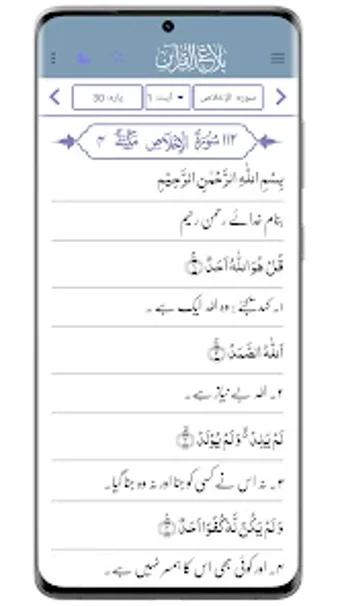 بلاغ القرآن
سورہ الإخلاص آیت: 1 پارہ: 30
۱۱۲ سُوْرَةُ الْإِخْلَاصِ مَكِّيَّةٌ ۴
بِسْمِ اللّٰهِ الرَّحْمٰنِ الرَّحِيْمِ
بنام خدائے رحمن رحیم
قُلْ هُوَ اللّٰهُ اَحَدٌ ﴿۱﴾
۱۔ کہدیجئے: وہ اللہ ایک ہے۔
اَللّٰهُ الصَّمَدُ ﴿۲﴾
۲۔ اللہ بے نیاز ہے۔
لَمْ يَلِدْ ۙ وَ لَمْ يُوْلَدْ ﴿۳﴾
۳۔ نہ اس نے کسی کو جنا اور نہ وہ جنا گیا۔
وَ لَمْ يَكُنْ لَّهٗ كُفُوًا اَحَدٌ ﴿۴﴾
۴۔ اور کوئی بھی اس کا ہمسر نہیں ہے۔